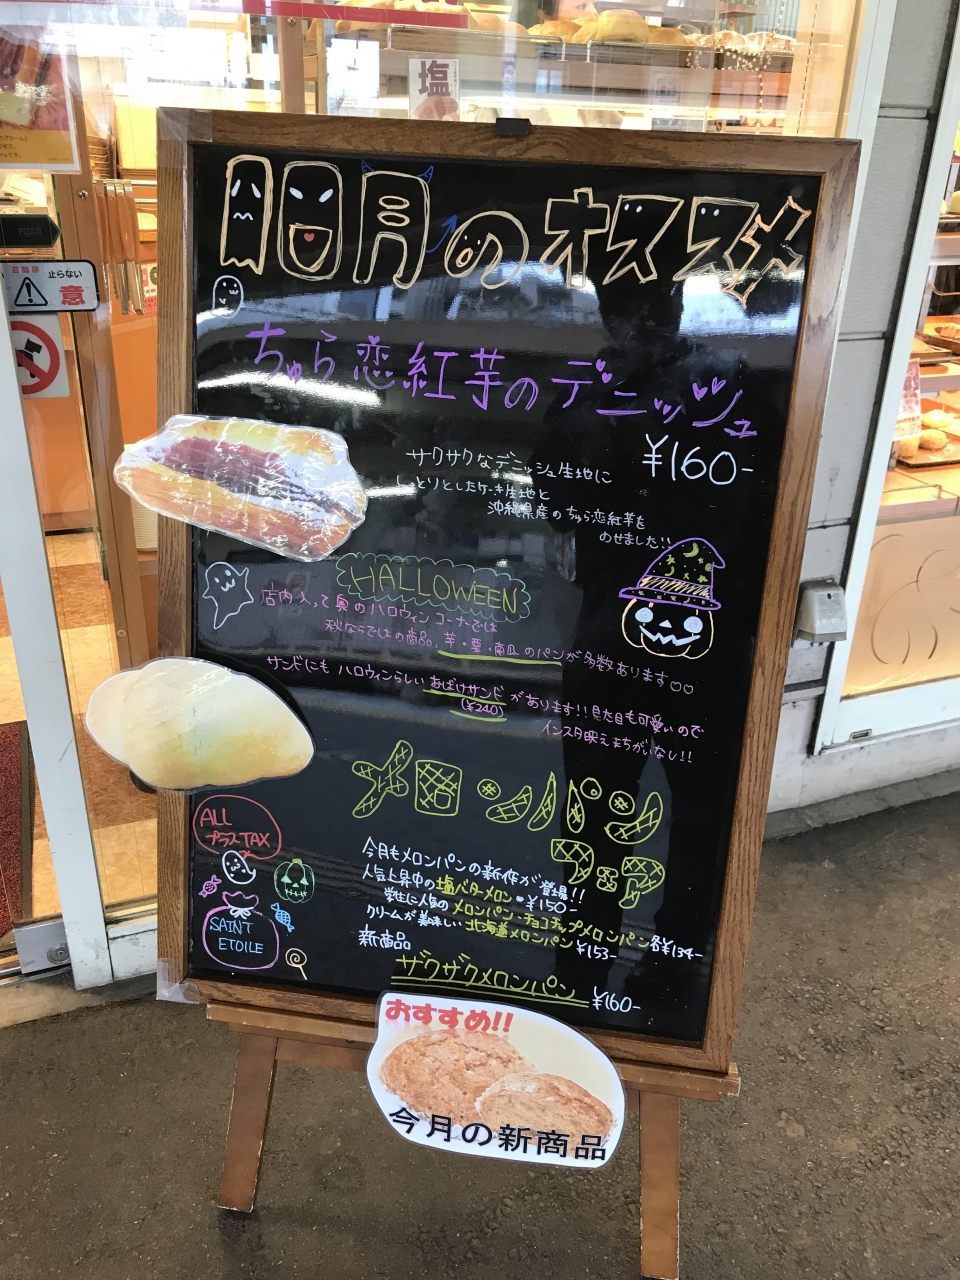 塩
PISCO
自動扉
止らない
意
10月のオススメ
ちゅら恋紅芋のデニッシュ
¥160-
サクサクなデニッシュ生地に
しっとりとしたケーキ生地と
沖縄県産のちゅら恋紅芋を
のせました!!
HALLOWEEN
店内入って奥のハロウィンコーナーでは
秋ならではの商品、芋・栗・南瓜のパンが多数あります♡♡
サンドにも ハロウィンらしい おばけサンド があります!! 見た目も可愛いので
(¥240)
インスタ映えまちがいなし!!
メロンパン
フェア
ALL
プラスTAX
今月もメロンパンの新作が登場!!
人気上昇中の塩バターメロン・¥150-
学生に人気の メロンパン・チョコチップメロンパン各¥134-
クリームが美味しい 北海道メロンパン¥153-
新商品
ザクザクメロンパン ¥160-
SAINT
ETOILE
おすすめ!!
今月の新商品